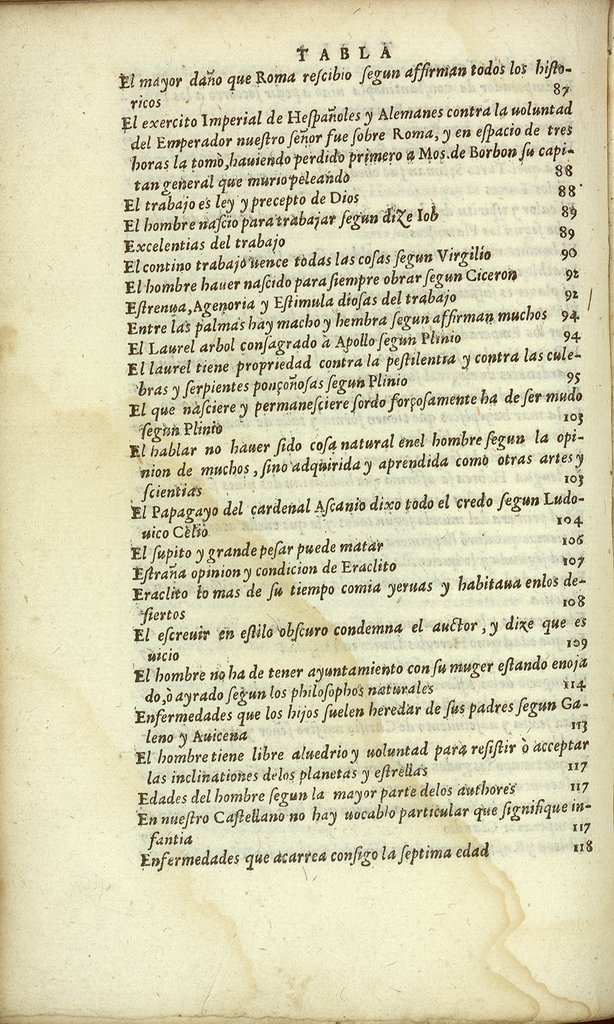 TABLA
El mayor daño que Roma reſcibio ſegun affirman todos los hiſto-
ricos 87
El exercito Imperial de Heſpañoles y Alemanes contra la uoluntad
del Emperador nueſtro ſeñor fue ſobre Roma, y en eſpacio de tres
horas la tomò, hauiendo perdido primero a Moſ. de Borbon ſu capi-
tan general que murio peleando 88
El trabajo es ley y precepto de Dios 88
El hombre naſcio para trabajar ſegun dize Iob 89
Excelentias del trabajo 89
El contino trabajo uence todas las coſas ſegun Virgilio 90
El hombre hauer naſcido para ſiempre obrar ſegun Ciceron 92
Eſtrenua, Agenoria y Eſtimula dioſas del trabajo 92
Entre las palmas hay macho y hembra ſegun affirman muchos 94
El Laurel arbol conſagrado à Apollo ſegun Plinio 94
El laurel tiene propriedad contra la peſtilentia y contra las cule-
bras y ſerpientes ponçoñoſas ſegun Plinio 95
El que naſciere y permaneſciere ſordo forçoſamente ha de ſer mudo
ſegun Plinio 103
El hablar no hauer ſido coſa natural enel hombre ſegun la opi-
nion de muchos, ſino adquirida y aprendida como otras artes y
ſcientias 103
El Papagayo del cardenal Aſcanio dixo todo el credo ſegun Ludo-
uico Celio 104
El ſupito y grande peſar puede matar 106
Eſtraña opinion y condicion de Eraclito 107
Eraclito lo mas de ſu tiempo comia yeruas y habitaua enlos de-
ſiertos 108
El eſcreuir en eſtilo obſcuro condemna el auctor, y dize que es
uicio 109
El hombre no ha de tener ayuntamiento con ſu muger eſtando enoja
do, ò ayrado ſegun los philoſophos naturales 114
Enfermedades que los hijos ſuelen heredar de ſus padres ſegun Ga-
leno y Auicena 113
El hombre tiene libre aluedrio y uoluntad para reſiſtir ò acceptar
las inclinationes delos planetas y eſtrellas 117
Edades del hombre ſegun la mayor parte delos authores 117
En nueſtro Caſtellano no hay uocablo particular que ſignifique in-
fantia 117
Enfermedades que acarrea conſigo la ſeptima edad 118